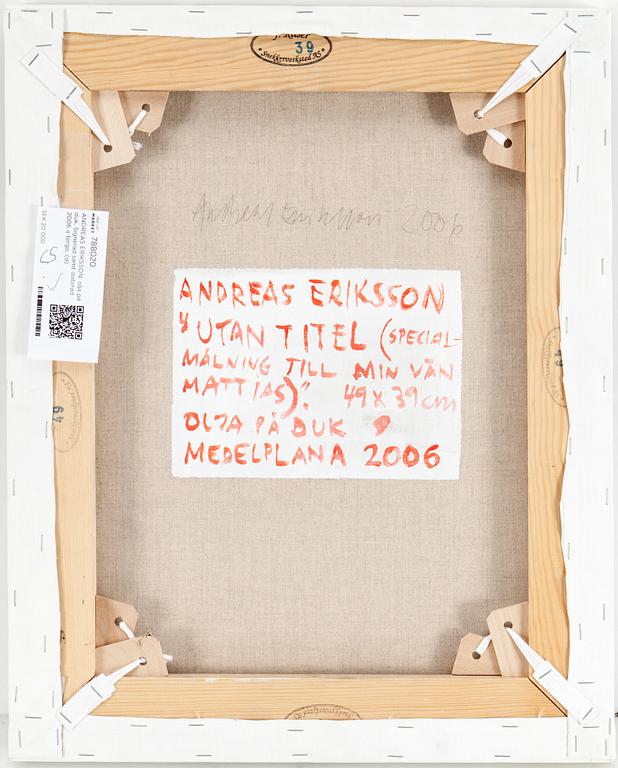 J. Riiser
39
Snekkerverksted AS
Andreas Eriksson 2006
ANDREAS ERIKSSON
"UTAN TITEL (SPECIAL-
MÅLNING TILL MIN VÄN
MATTIAS)". 49 x 39 cm
OLJA PÅ DUK
MEDELPLANA 2006
MARKET 788020
ANDREAS ERIKSSON, olja på
duk. Signerad samt daterad
2006 a tergo. (d)
SEK 20 000
49
49